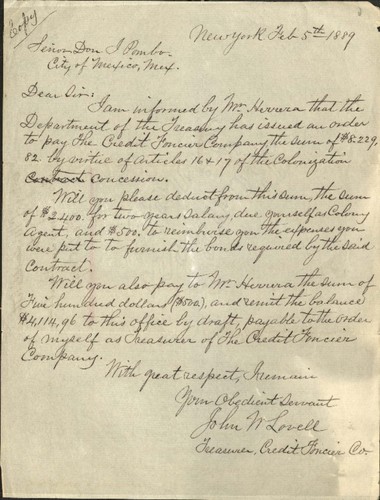 Copy
New York Feb 5th 1889
Señor Don I Pombo.
City of Mexico, Mex.
Dear Sir:
I am informed by Mr Herrera that the
Department of the Treasury has issued an order
to pay The Credit Foncier Company the sum of $8.229,
82 by virtue of Articles 16 & 17 of the Colonization
Contract concession.
Will you please deduct from this sum, the sum
of $2.400. for two years salary, due yourself as Colony
Agent, and $500. to reimburse you the expenses you
were put to to furnish the bonds required by the said
Contract.
Will you also pay to Mr Herrera the sum of
Five hundred dollars ($500), and remit the balance
$4,114,96 to this office by draft, payable to the order
of myself as Treasurer of The Credit Foncier
Company.
With great respect, I remain
Your Obedient Servant
John W Lovell
Treasurer, Credit Foncier Co.